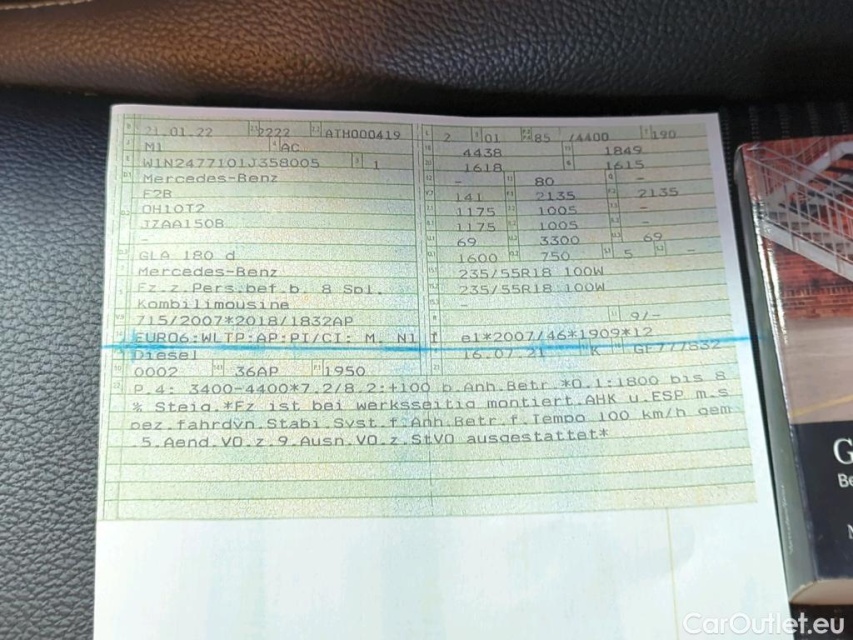 21.01.22 2222 ATH000419 2 01 85 /4400 190
M1 AC 4438 1849
W1N2477101J358005 1 1618 1615
Mercedes-Benz - 80 -
F2B 141 2135 2135
OH10T2 1175 1005 -
JZAA150B 1175 1005 -
- 69 3300 69
GLA 180 d 1600 750 5 -
Mercedes-Benz 235/55R18 100W
Fz.z.Pers.bef.b. 8 Spl. 235/55R18 100W
Kombilimousine -
715/2007*2018/1832AP 9/-
EURO6;WLTP;AP;PI/CI; M, N1 I e1*2007/46*1909*12
Diesel 16.07.21 K GF777832
0002 36AP 1950
P.4: 3400-4400*7.2/8.2:+100 b.Anh.Betr.*O.1:1800 bis 8
% Steig.*Fz ist bei werksseitig montiert.AHK u.ESP m.s
pez.fahrdyn.Stabi.Syst.f.Anh.Betr.f.Tempo 100 km/h gem
.5.Aend.VO.z.9.Ausn.VO.z.StVO ausgestattet*
G
Be
CarOutlet.eu